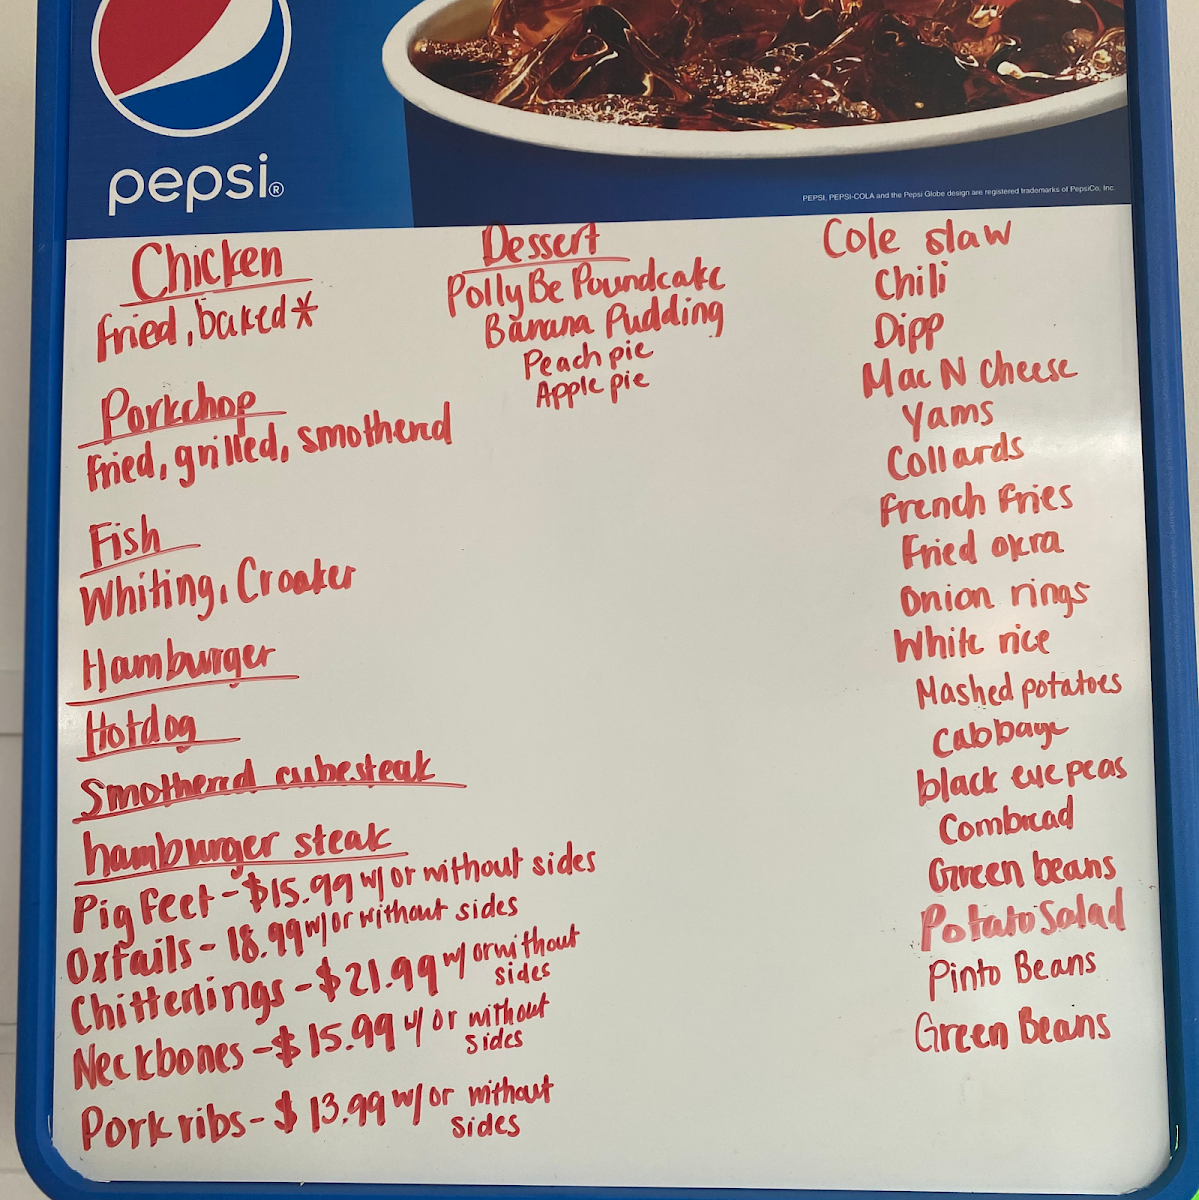 pepsi®
PEPSI, PEPSI-COLA and the Pepsi Globe design are registered trademarks of PepsiCo, Inc.
Chicken
Fried, baked*
Porkchop
Fried, grilled, smothered
Fish
Whiting, Croaker
Hamburger
Hotdog
Smothered cubesteak
hamburger steak
Pig Feet - $15.99 w/ or without sides
Oxtails - 18.99 w/ or without sides
Chitterlings - $21.99 w/ or without
sides
Neckbones - $15.99 w/ or without
sides
Pork ribs - $13.99 w/ or without
sides
Dessert
PollyBe Poundcake
Banana Pudding
Peach pie
Apple pie
Cole slaw
Chili
Dipp
Mac N Cheese
Yams
Collards
French Fries
Fried okra
Onion rings
White rice
Mashed potatoes
Cabbage
black eye peas
Cornbread
Green beans
Potato Salad
Pinto Beans
Green Beans